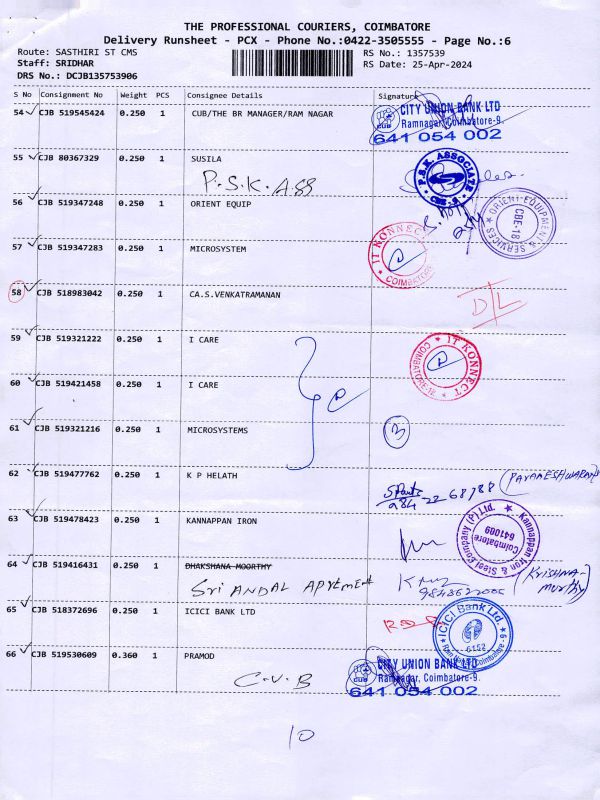 THE PROFESSIONAL COURIERS, COIMBATORE
Delivery Runsheet - PCX - Phone No.:0422-3505555 - Page No.:6
Route: SASTHIRI ST CMS RS No.: 1357539
Staff: SRIDHAR RS Date: 25-Apr-2024
DRS No.: DCJB135753906
S No Consignment No Weight PCS Consignee Details Signature
54 CJB 519545424 0.250 1 CUB/THE BR MANAGER/RAM NAGAR
CITY UNION BANK LTD
Ramnagar, Coimbatore-9.
641 054 002
55 CJB 80367329 0.250 1 SUSILA
P.S.K. Ass
P.S.K. ASSOCIATES
CBE-9
56 CJB 519347248 0.250 1 ORIENT EQUIP
ORIENT EQUIPMENTS & SERVICES
CBE-18
57 CJB 519347283 0.250 1 MICROSYSTEM
IT KONNECT
COIMBATORE
58 CJB 518983042 0.250 1 CA.S.VENKATRAMANAN
D/L
59 CJB 519321222 0.250 1 I CARE
IT KONNECT
COIMBATORE-18
60 CJB 519421458 0.250 1 I CARE
61 CJB 519321216 0.250 1 MICROSYSTEMS
3
62 CJB 519477762 0.250 1 K P HELATH
63 CJB 519478423 0.250 1 KANNAPPAN IRON
Kannappan Iron & Steel Company (P) Ltd.
Coimbatore
641009
64 CJB 519416431 0.250 1 DHAKSHANA MOORTHY
Sri ANDAL APTEMENT
(Krishna-
murthy)
65 CJB 518372696 0.250 1 ICICI BANK LTD
ICICI Bank Ltd.
6152
Coimbatore - 9
66 CJB 519530609 0.360 1 PRAMOD
C.U.B
CITY UNION BANK LTD
CUB
Ramnagar, Coimbatore-9.
641 054 002
10